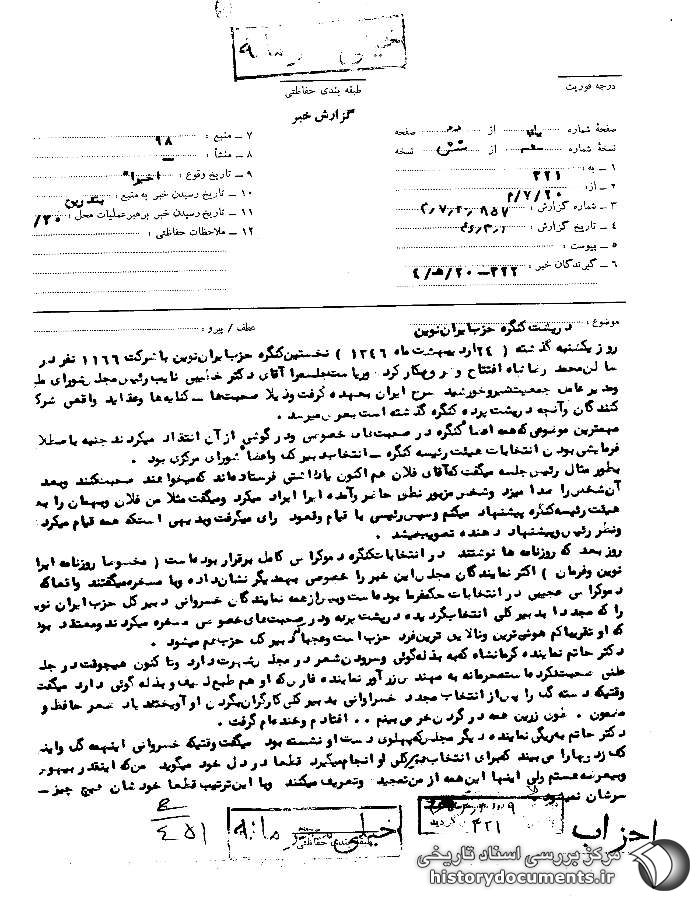 خیلی محرمانه
درجه فوریت
طبقه بندی حفاظتی
گزارش خبر
صفحهٔ شماره یک از دو صفحه
نسخهٔ شماره از شش نسخه
۱ ـ به : ۳۲۱
۲ ـ از: ۲۰/۷/م
۳ ـ شماره گزارش :
۴ ـ تاریخ گزارش :
۵ ـ پیوست :
۶ ـ گیرندگان خبر : ۳۲۲ـ
۷ ـ منبع : ۹۸
۸ ـ منشأ : ـ
۹ ـ تاریخ وقوع : اخیراً
۱۰ ـ تاریخ رسیدن خبر به منبع :
۱۱ ـ تاریخ رسیدن خبر برهبر عملیات محل :
۱۲ ـ ملاحظات حفاظتی :
موضوع : در پشت کنگره حزب ایران نوین
عطف / پیرو :
روز یکشنبه گذشته ( ۲۴ اردیبهشت ماه ۱۳۴۶ ) نخستین کنگره حزب ایران نوین با شرکت ۱۱۶۶ نفر در
سالن محمد رضا شاه افتتاح و شروع بکار کرد و ریاست جلسه را آقای دکتر خطیبی نایب رئیس مجلس شورای
و مدیر عامل جمعیت شیر و خورشید سرخ ایران بعهده گرفت و ذیلا صحبت‌ها ـ کنایه‌ها و عقاید واقعی شرکت
کنندگان و آنچه در پشت پرده کنگره گذشته است بعرض میرسد .
مهمترین موضوعی که همه اعضاء کنگره در صحبت‌های خصوصی و درگوشی از آن انتقاد میکردند جنبه باصطلاح
فرمایشی بودن انتخابات هیئت رئیسه کنگره ـ انتخاب دبیر کل و اعضاء شورای مرکزی بود .
بطور مثال رئیس جلسه میگفت که آقای فلان هم اکنون یادداشتی فرستاده‌اند که میخواهند صحبت کنند و بعد
آن شخص را صدا میزد و شخص مزبور نطق حاضر و آماده‌ای را ایراد میکرد و میگفت مثلا من فلان و بهمان را به
هیئت رئیسه کنگره پیشنهاد میکنم و سپس رئیس با قیام و قعود رای میگرفت و بدیهی است که همه قیام میکردند
و نظر رئیس و پیشنهاد دهنده تصویب میشد .
روز بعد که روزنامه ها نوشتند در انتخابات کنگره دموکراسی کامل برقرار بوده است ( مخصوصا روزنامه ایران
نوین و فرمان ) اکثر نمایندگان مجلس این خبر را خصوصی بهمدیگر نشان داده و با مسخره میگفتند واقعا که
دموکراسی عجیبی در انتخابات حکمفرما بوده است و بیش از همه نمایندگان خسروانی دبیر کل حزب ایران نوین
را که مجددا بدبیر کلی انتخاب گردیده در پشت پرده و در صحبت‌های خصوصی مسخره میکردند و معتقد بودند
که او تقریبا کم هوش‌ترین و نالایق ترین فرد حزب است و عجبا که دبیر کل حزب هم میشود .
دکتر حاتم نماینده کرمانشاه که به بذله‌گوئی و سرودن شعر در مجلس شهرت دارد و تا کنون هیچوقت در جلسه
علنی صحبت نکرده است محرمانه به مهندس زرآور نماینده فارس که او هم طبع لطیف و بذله گوئی دارد میگفت
وقتیکه دسته گل را پس از انتخاب مجدد خسروانی بدبیر کلی کارگران بگردن او آویختند یاد شعر حافظ و
مضمون . طوق زرین همه در گردن خر می‌بینم . . افتادم و خنده‌ام گرفت .
دکتر حاتم به یکی نماینده دیگر مجلس که پهلوی دست او نشسته بود میگفت وقتیکه خسروانی اینهمه گل و اینهمه
کف زدنها را می بیند که برای انتخاب دبیر کلی او انجام میگیرد قطعا در دل خود میگوید من که اینقدر بیهوش
و بیعرضه هستم ولی اینها این همه از من تمجید و تعریف میکنند و با این ترتیب قطعا خودشان هیچ چیز ـ
سرشان نمیشود
۴۵۱
خیلی محرمانه
طبقه بندی حفاظتی
۳۲۱
احزاب
مرکز بررسی اسناد تاریخی
historydocuments.ir